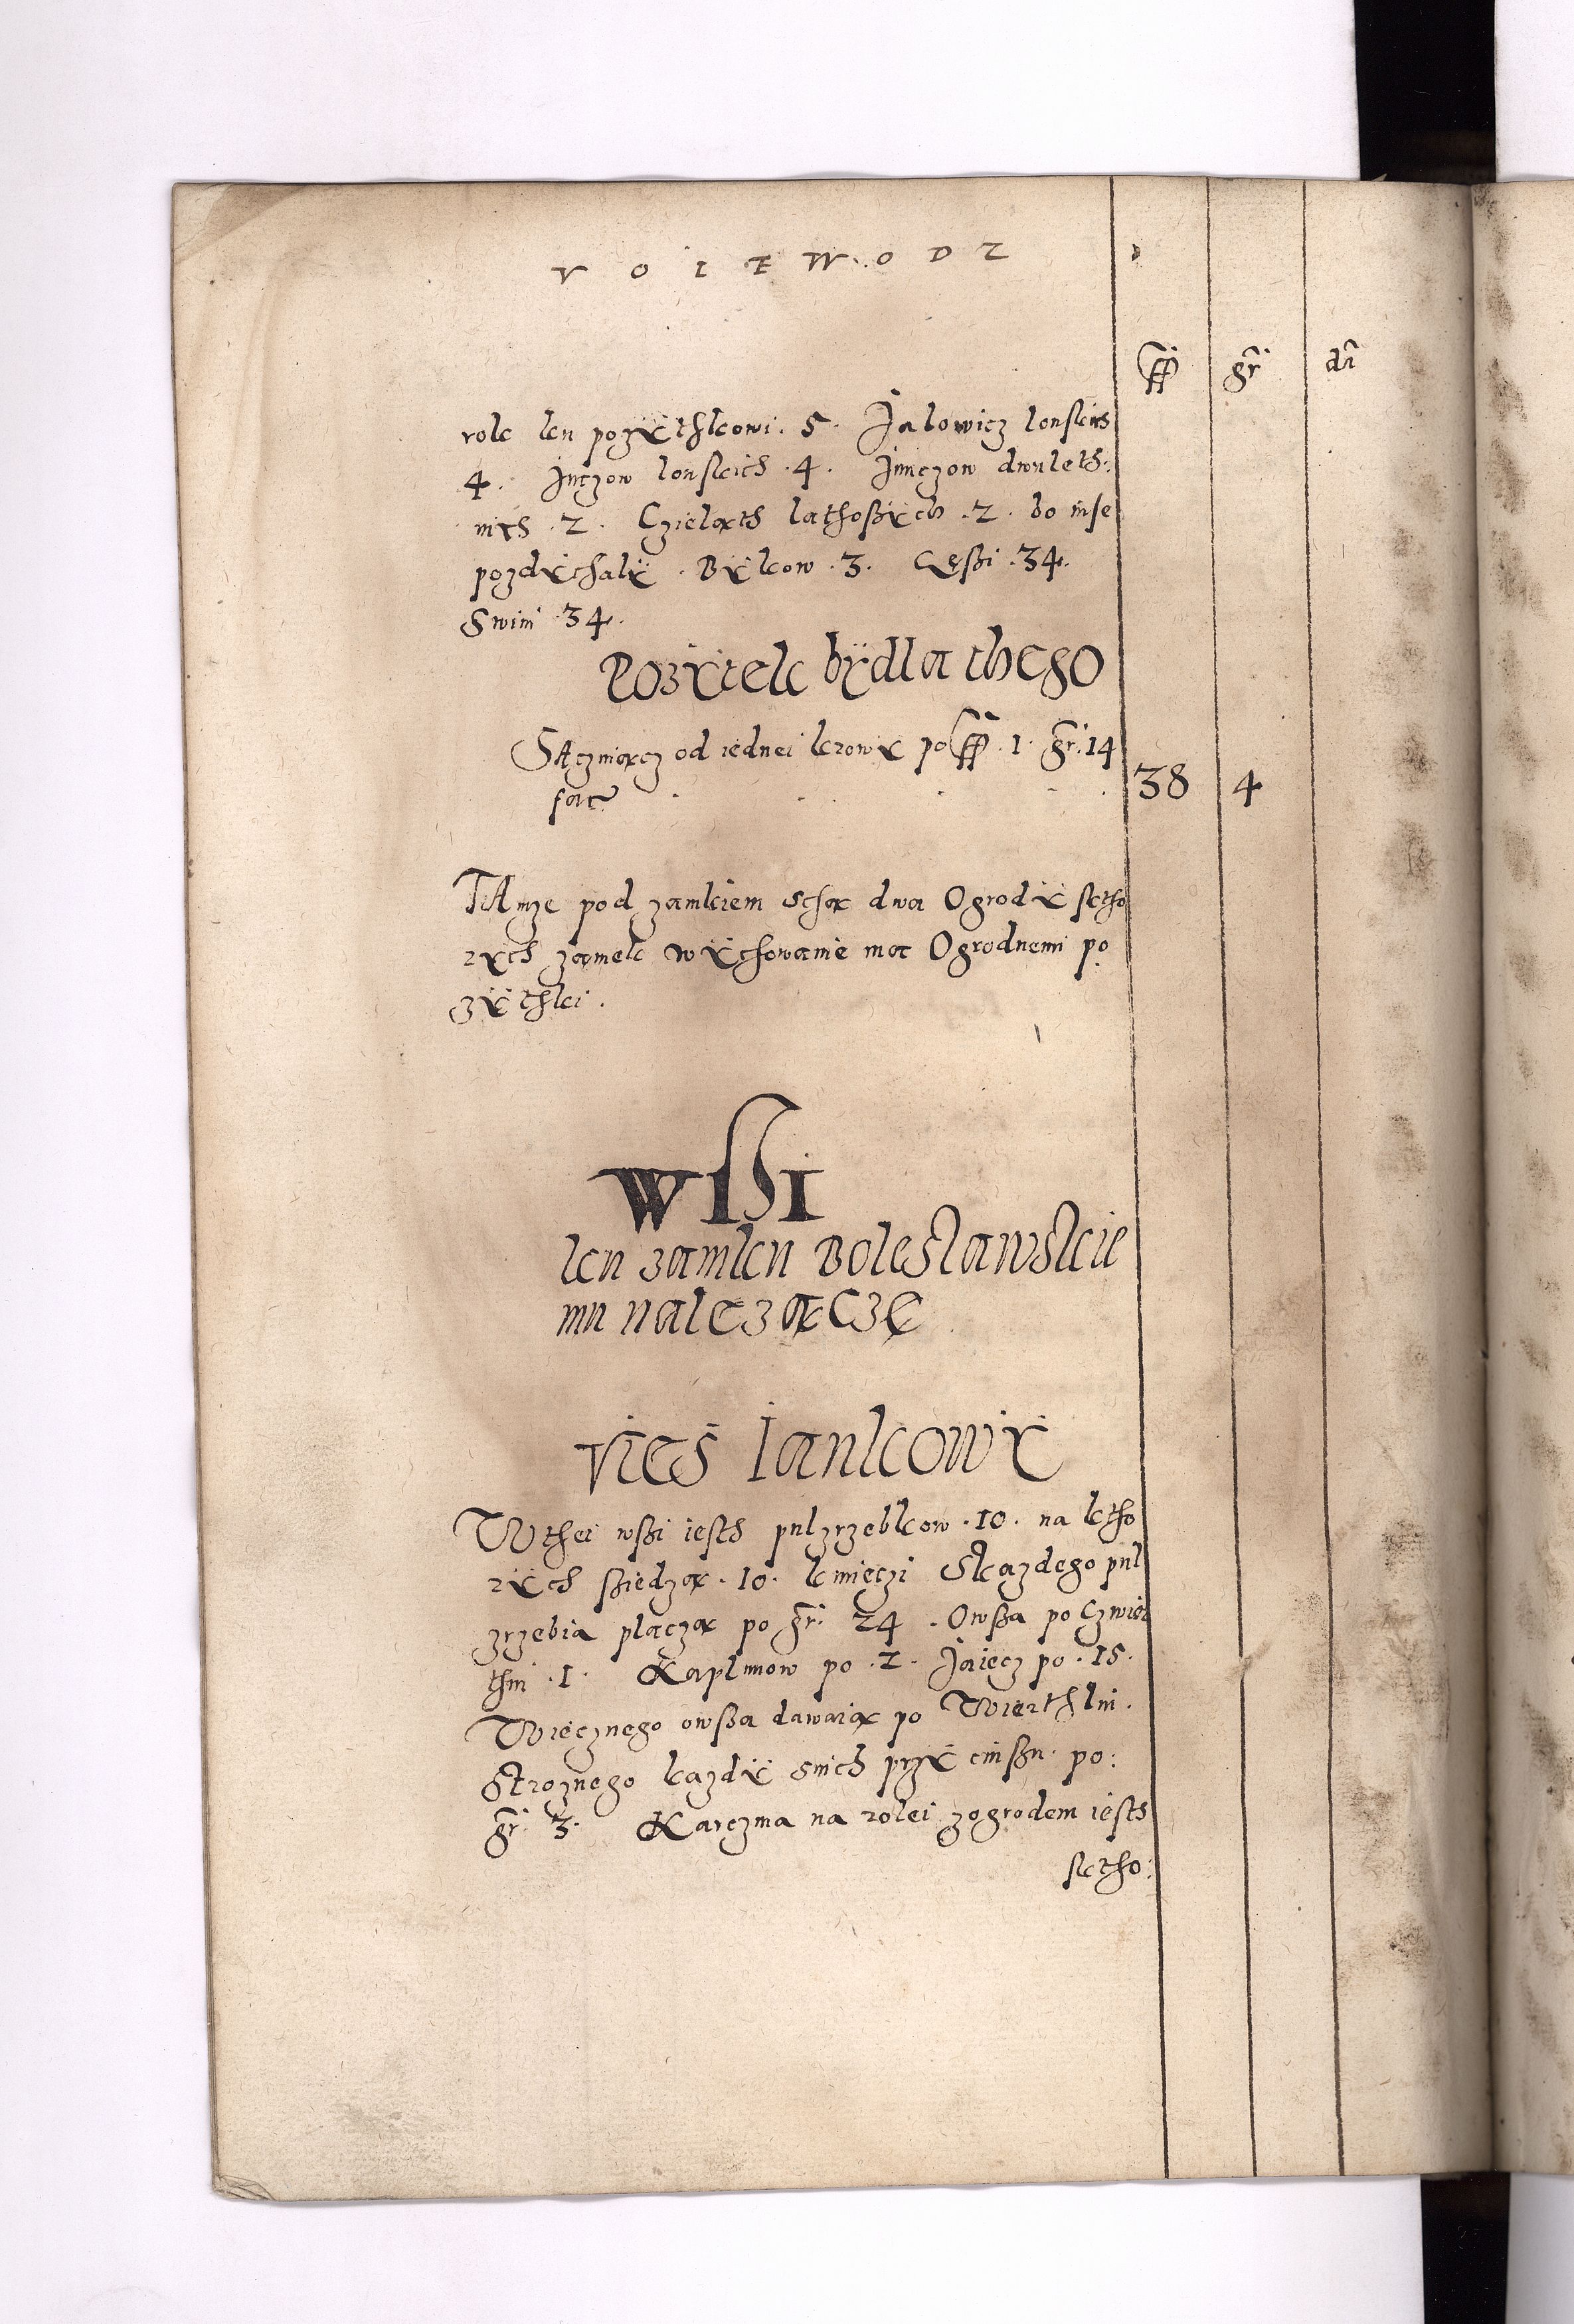 VOIEWODZ
ff gr d
rok ku pozythkowi . 5 . Jalowicz lonskich
4 . Junczow lonskich . 4 . Junczow dwuleth:
nich . 2 . Czieląth lathoßych . 2 . bo inse
pozdychaly . Bykow . 3 . Gęßi . 34 .
Swini . 34 .
Pozytek bydla thego
SAcziącz od iednei krowy po ff . 1 . gr . 14
facit 38 4
TAmze pod zamkiem sthą dwa Ogrody ktho
rych zamek wychowanie ma Ogrodnemi po
zythki .
WSSI
ku zamku Boleslawskie
mu należączę
Vies Iankowy
W thei wßi iesth pulzrzebkow . 10 . na ktho
rych ßiedzą . 10 . kmieczi Skazdego pul
zrzebia placzą po gr . 24 . Owßa po Czwier
thni . 1 . Kaplunow po . 2 . Jaiecz po . 15 .
Wiecznego owßa dawaią po Wierthlni .
Stroznego kazdy snich przy cinßu po:
gr . 3 . Karczma na rolei zogrodem iesth
ktho: